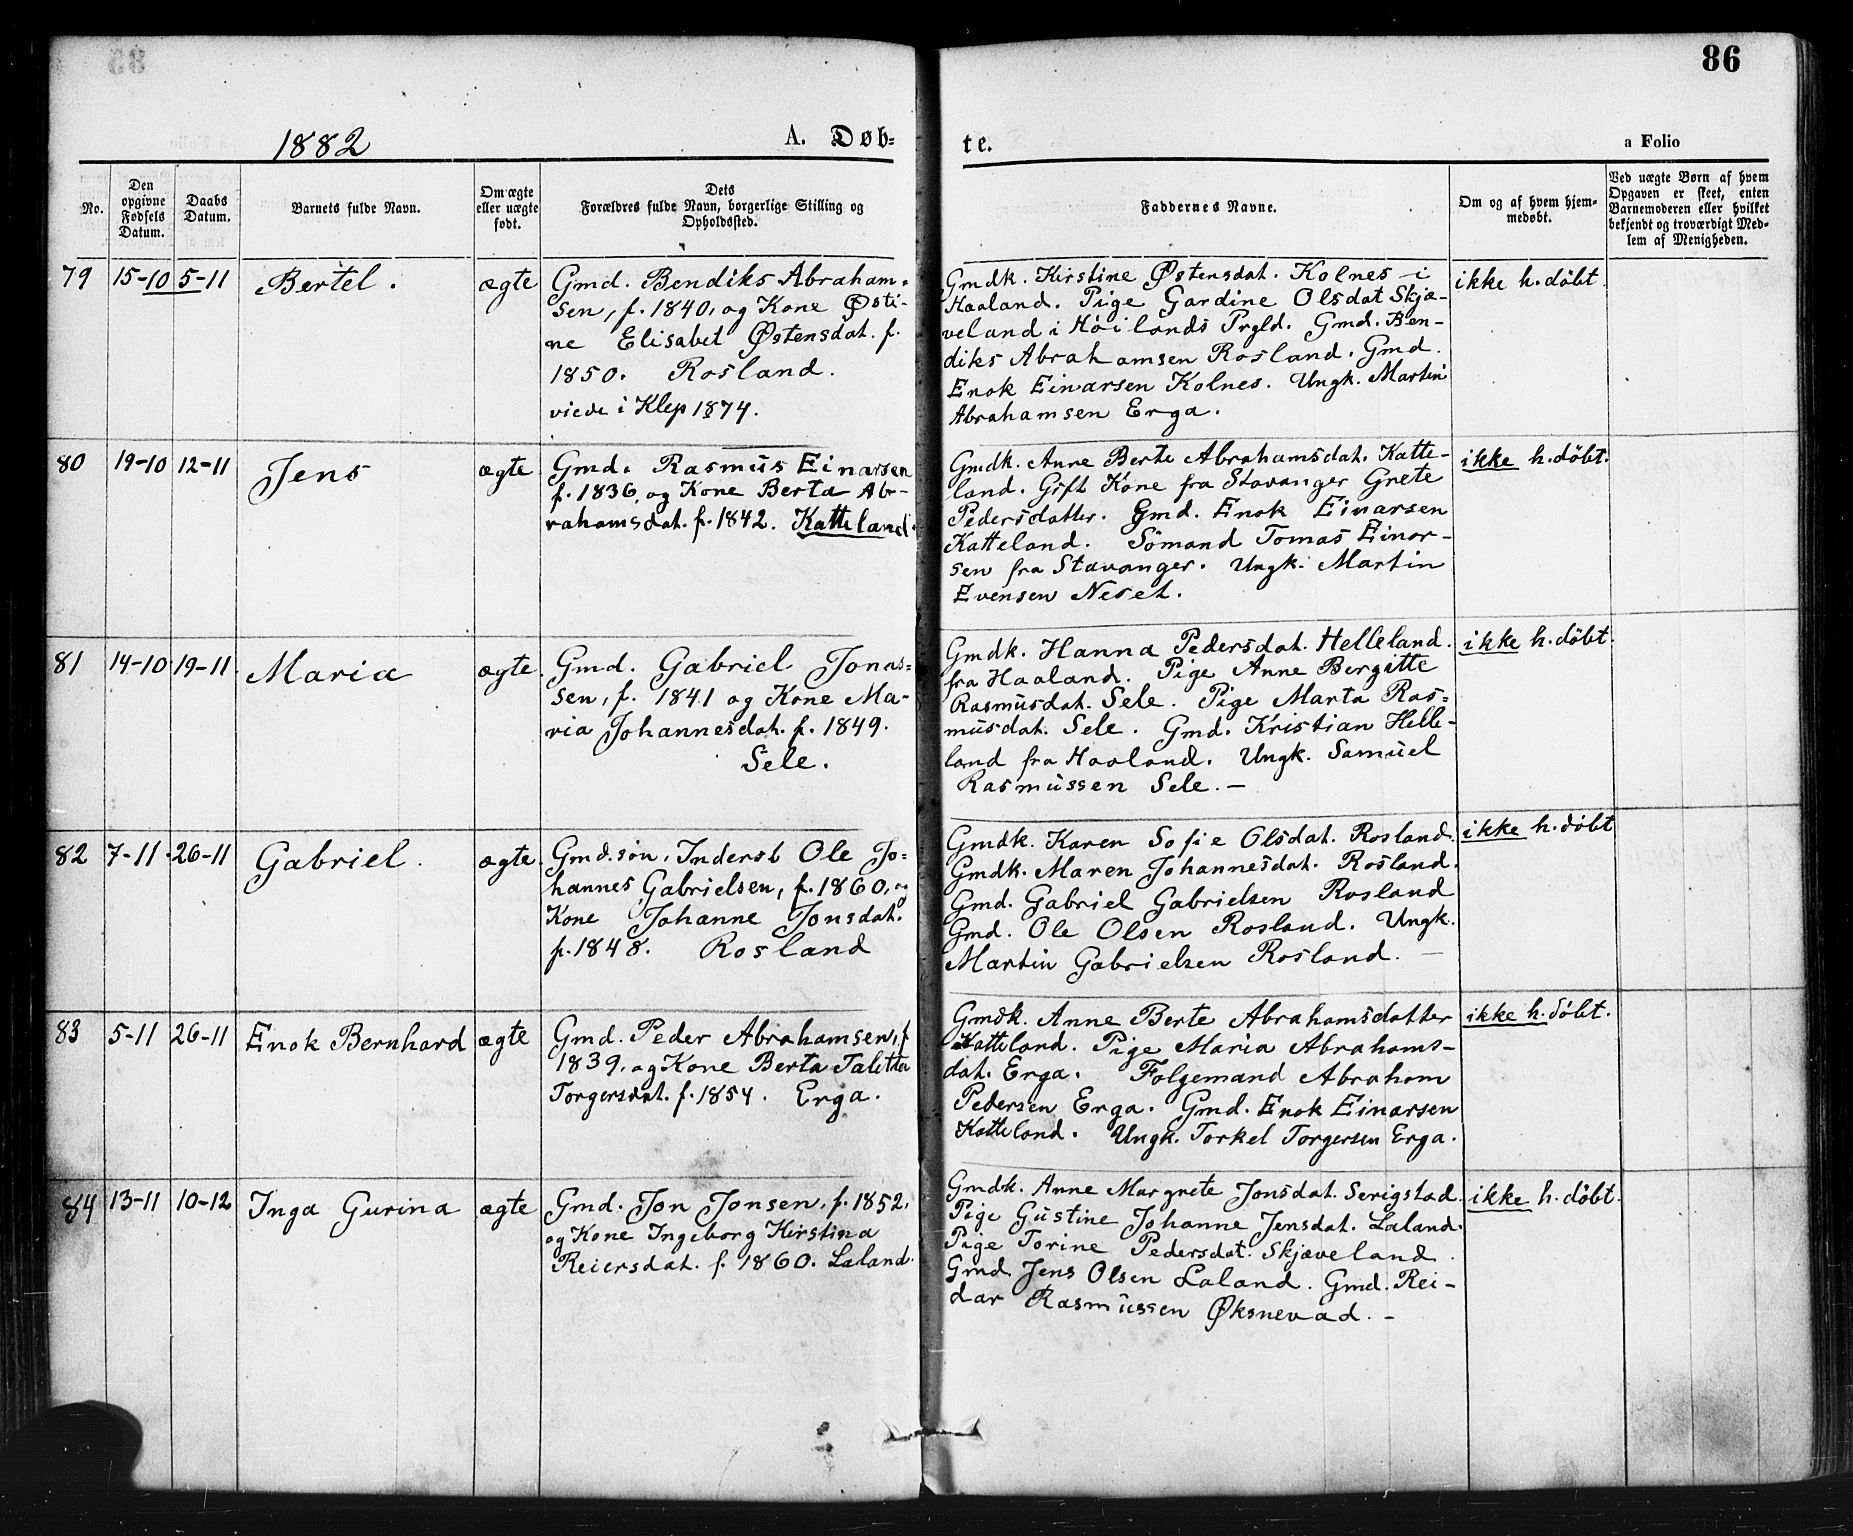 86
1882
A. Døb-
te.
a Folio
No.
Den
opgivne
Fødsels
Datum.
Daabs
Datum.
Barnets fulde Navn.
Om ægte
eller uægte
født.
Dets
Forældres fulde Navn, borgerlige Stilling og
Opholdssted.
Faddernes Navne.
Om og af hvem hjem-
medøbt.
Ved uægte Børn af hvem
Opgaven er skeet, enten
Barnemoderen eller hvilket
bekjendt og troværdigt Med-
lem af Menigheden.
79 15-10 5-11 Bertel. ægte
Gmd. Bendiks Abraham-
sen, f. 1840, og Kone Østi-
ne Elisabet Østensdat. f.
1850. Rosland.
viede i Klep 1874.
Gmdk. Kirstine Østensdat. Kolnes i
Haaland. Pige Gardine Olsdat Skjæ-
veland i Höilands Prgld. Gmd. Ben-
diks Abrahamsen Rosland. Gmd.
Enok Einarsen Kolnes. Ungk. Martin
Abrahamsen Erga.
ikke h. døbt
80 19-10 12-11 Jens ægte
Gmd. Rasmus Einarsen
f. 1836, og Kone Berta Ab-
rahamsdat. f. 1842. Katteland.
Gmdk. Anne Berte Abrahamsdat. Katte-
land. Gift Kone fra Stavanger Grete
Pedersdatter. Gmd. Enok Einarsen
Katteland. Sömand Tomas Einar-
sen fra Stavanger. Ungk. Martin
Evensen Neset.
ikke h. døbt.
81 14-10 19-11 Maria ægte
Gmd. Gabriel Jonas-
sen, f. 1841 og Kone Ma-
ria Johannesdat. f. 1849.
Sele.
Gmdk. Hanna Pedersdat. Helleland.
fra Haaland. Pige Anne Bergitte
Rasmusdat. Sele. Pige Marta Ras-
musdat. Sele. Gmd. Kristian Helle-
land fra Haaland. Ungk. Samuel
Rasmussen Sele. —
ikke h. døbt.
82 7-11 26-11 Gabriel. ægte
Gmd.søn, Inderst Ole Jo-
hannes Gabrielsen, f. 1860, og
Kone Johanne Jonsdat.
f. 1848. Rosland
Gmdk. Karen Sofie Olsdat. Rosland.
Gmdk. Maren Johannesdat. Rosland.
Gmd. Gabriel Gabrielsen Rosland
Gmd. Ole Olsen Rosland. Ungk.
Martin Gabrielsen Rosland. —
ikke h. døbt
83 5-11 26-11 Enok Bernhard ægte
Gmd. Peder Abrahamsen, f.
1839, og Kone Berta Talitha
Torgersdat. f. 1854. Erga.
Gmdk. Anne Berte Abrahamsdatter
Katteland. Pige Maria Abrahams-
dat. Erga. Folgemand Abraham
Pedersen Erga. Gmd. Enok Einarsen
Katteland. Ungk. Torkel Torgersen Erga.
ikke h. døbt.
84 13-11 10-12 Inga Gurina ægte
Gmd. Jon Jonsen, f. 1852,
og Kone Ingeborg Kirstina
Reiersdat. f. 1860. Laland.
Gmdk. Anne Margrete Jonsdat. Serigstad.
Pige Gustine Johanne Jensdat. Laland.
Pige Torine Pedersdat. Skjæveland.
Gmd. Jens Olsen Laland. Gmd. Rei-
dar Rasmussen Øksnevad. —
ikke h. døbt.